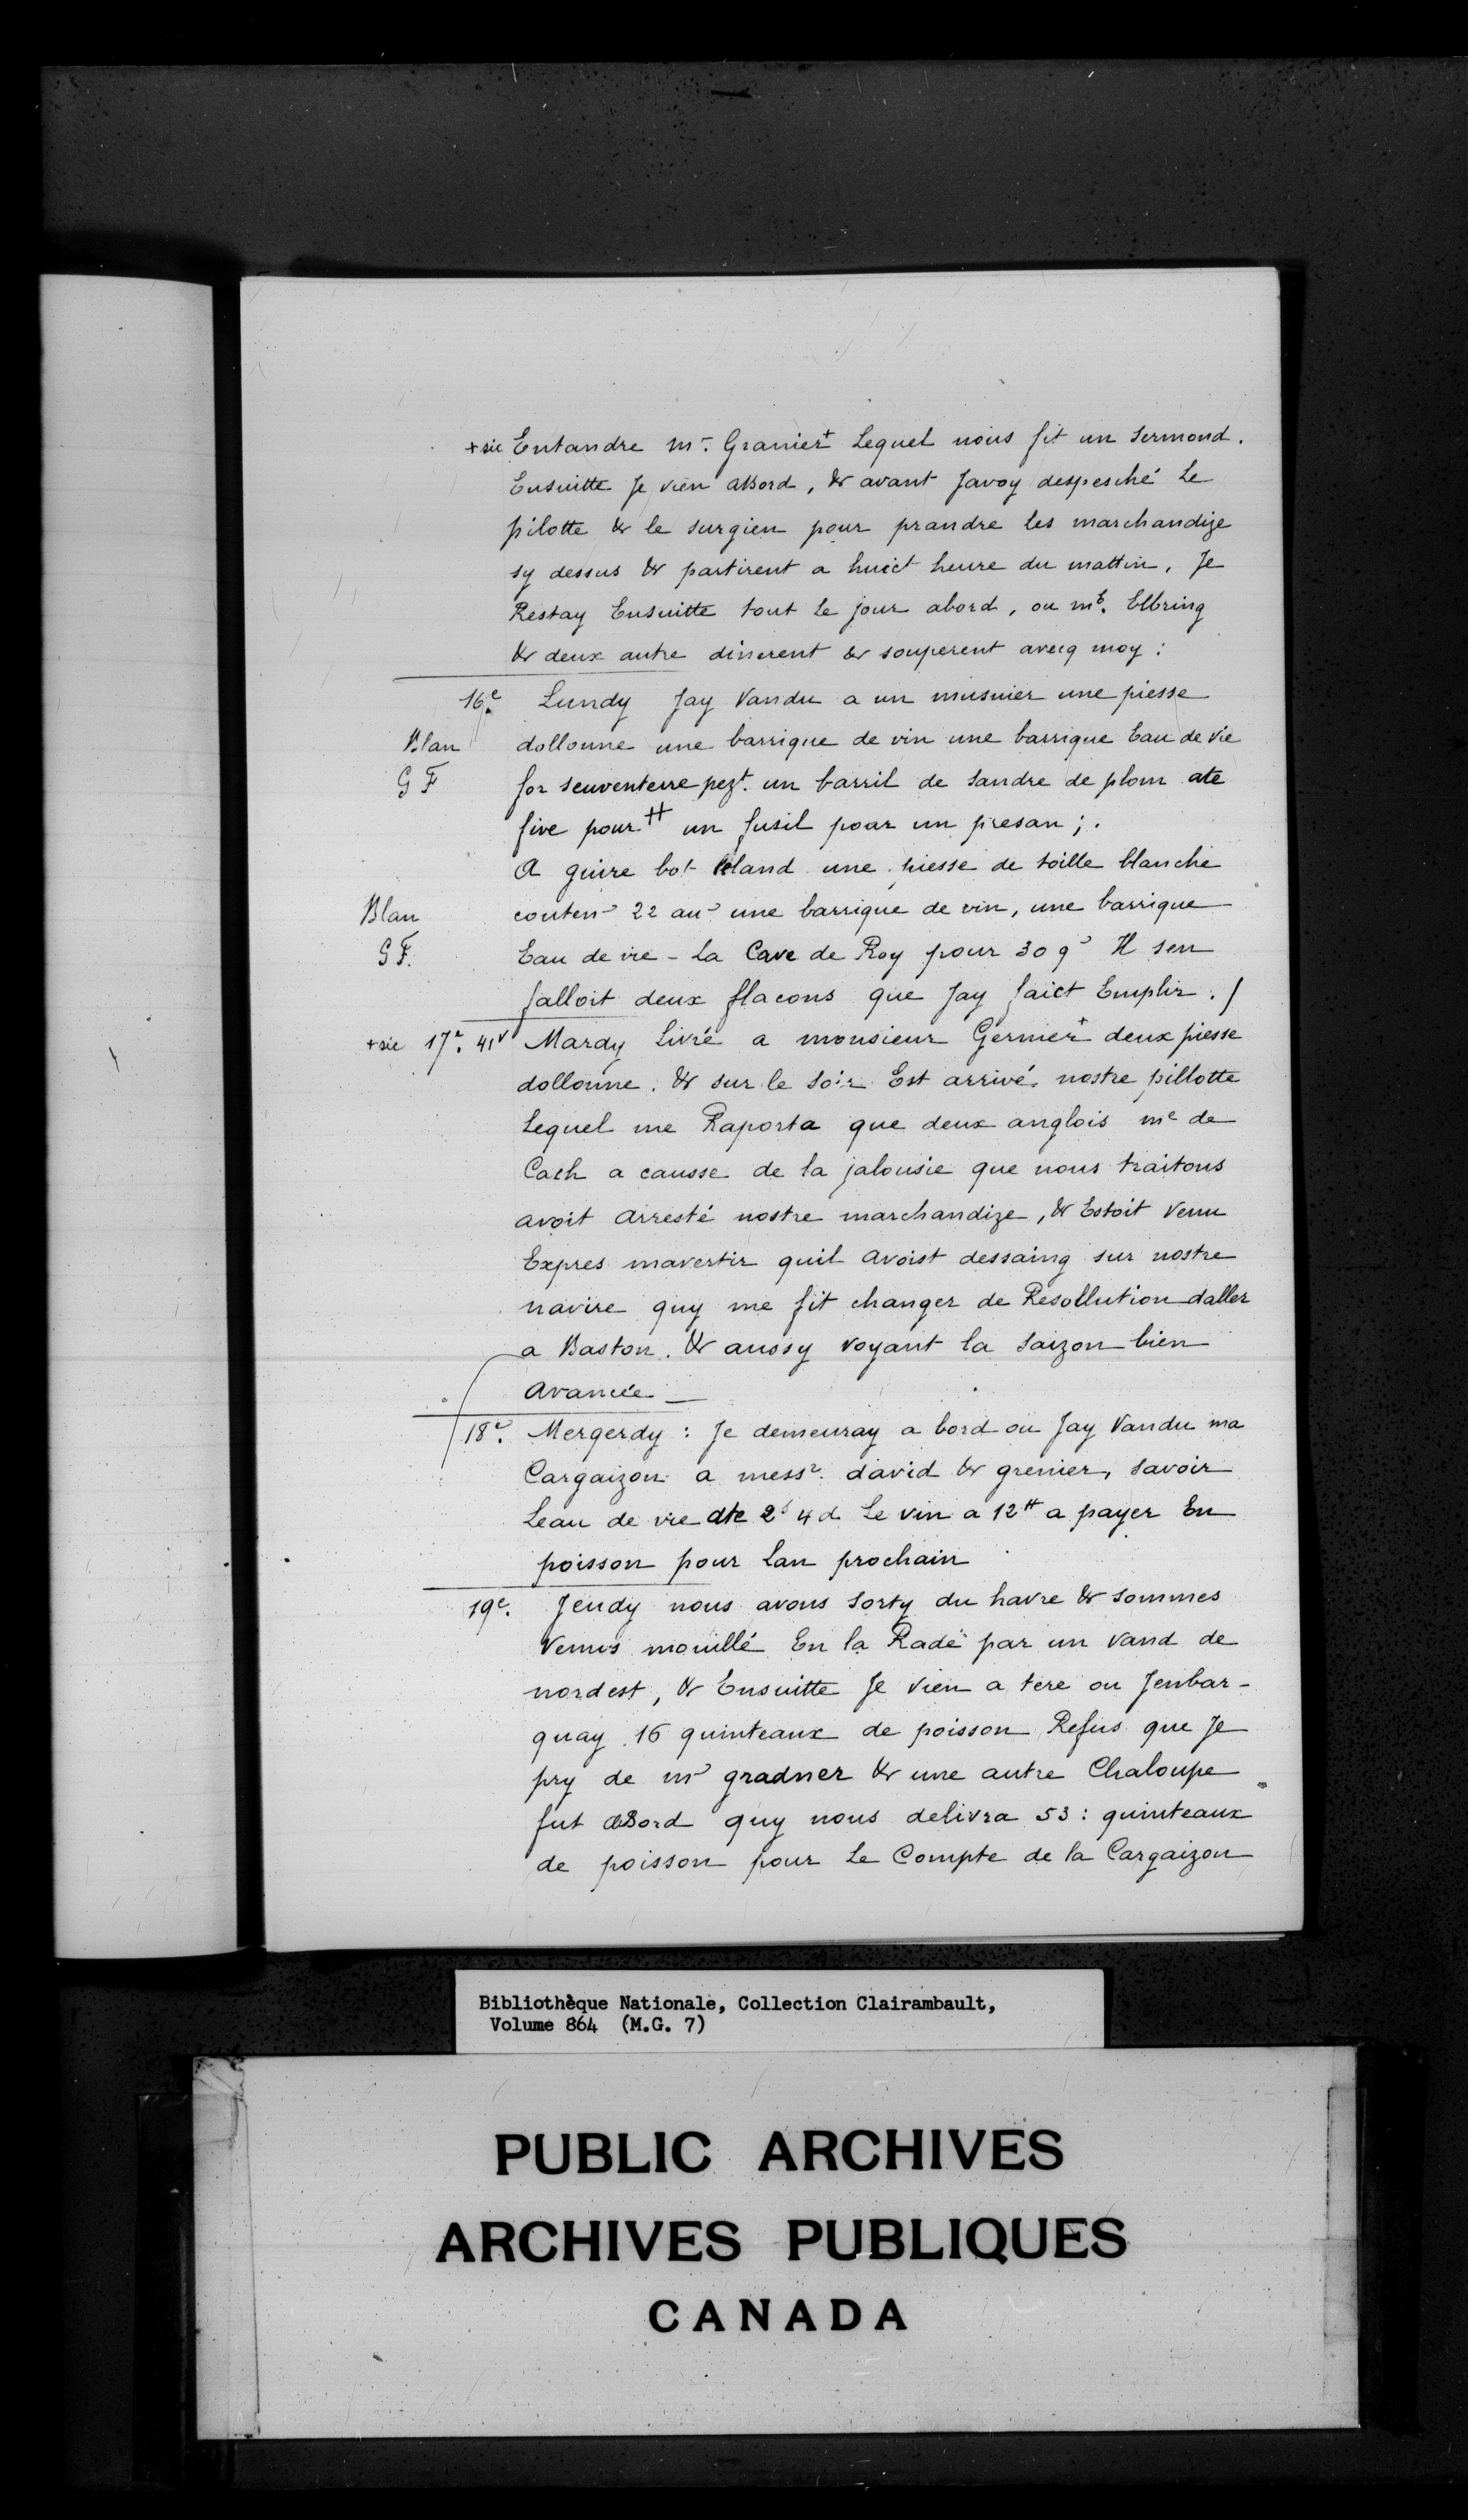 +sic Entandre mr. Granier+ Lequel nous fit un sermond.
Ensuitte Je vien abord, & avant Javoy despesché Le
pilotte & le surgien pour prandre les marchandize
sy dessus & partirent a huict heure du mattin, Je
Restay Ensuitte tout Le jour abord, ou mr. Elbring
& deux autre dinerent & souperent avecq moy :
16e. Lundy Jay Vandu a un musnier une piesse
Blan dollonne une barrique de vin une barrique Eau de vie
G F for seuventerre pezt. un barril de sandre de plom ate
five pour tt un fusil pour un presan ; .
A guire bot land une piesse de toille blanche
Blan conten 22 au une barrique de vin, une barrique
G F. Eau de vie - La Cave de Roy pour 30 q Il sen
falloit deux flacons que Jay faict Emplir . /
+sic 17e. 41v Mardy Livré a monsieur Gernier+ deux piesse
dollonne. & sur le soir Est arrivé nostre pillotte
Lequel me Raporta que deux anglois me de
Cach a causse de la jalousie que nous traitons
avoit arresté nostre marchandize, & Estoit Venu
Expres mavertir quil avoist dessaing sur nostre
navire quy me fit changer de Resollution daller
a Baston. & aussy voyant la saizon bien
avancée
18e. Mergerdy : Je demeuray a bord ou Jay Vandu ma
Cargaizon a messr. david & grenier, savoir
Leau de vie ate 2s 4d Le vin a 12tt a payer En
poisson pour Lan prochain
19e. Jeudy nous avons sorty du havre & sommes
Venus mouillé En la Rade par un vand de
nordest, & Ensuitte Je vien a tere ou Jenbar-
quay 16 quinteaux de poisson Refus que Je
pry de mr gradner & une autre Chaloupe
fut aBord quy nous delivra 53 : quinteaux
de poisson pour Le Compte de la Cargaizon
Bibliothèque Nationale, Collection Clairambault,
Volume 864 (M.G. 7)
PUBLIC ARCHIVES
ARCHIVES PUBLIQUES
CANADA